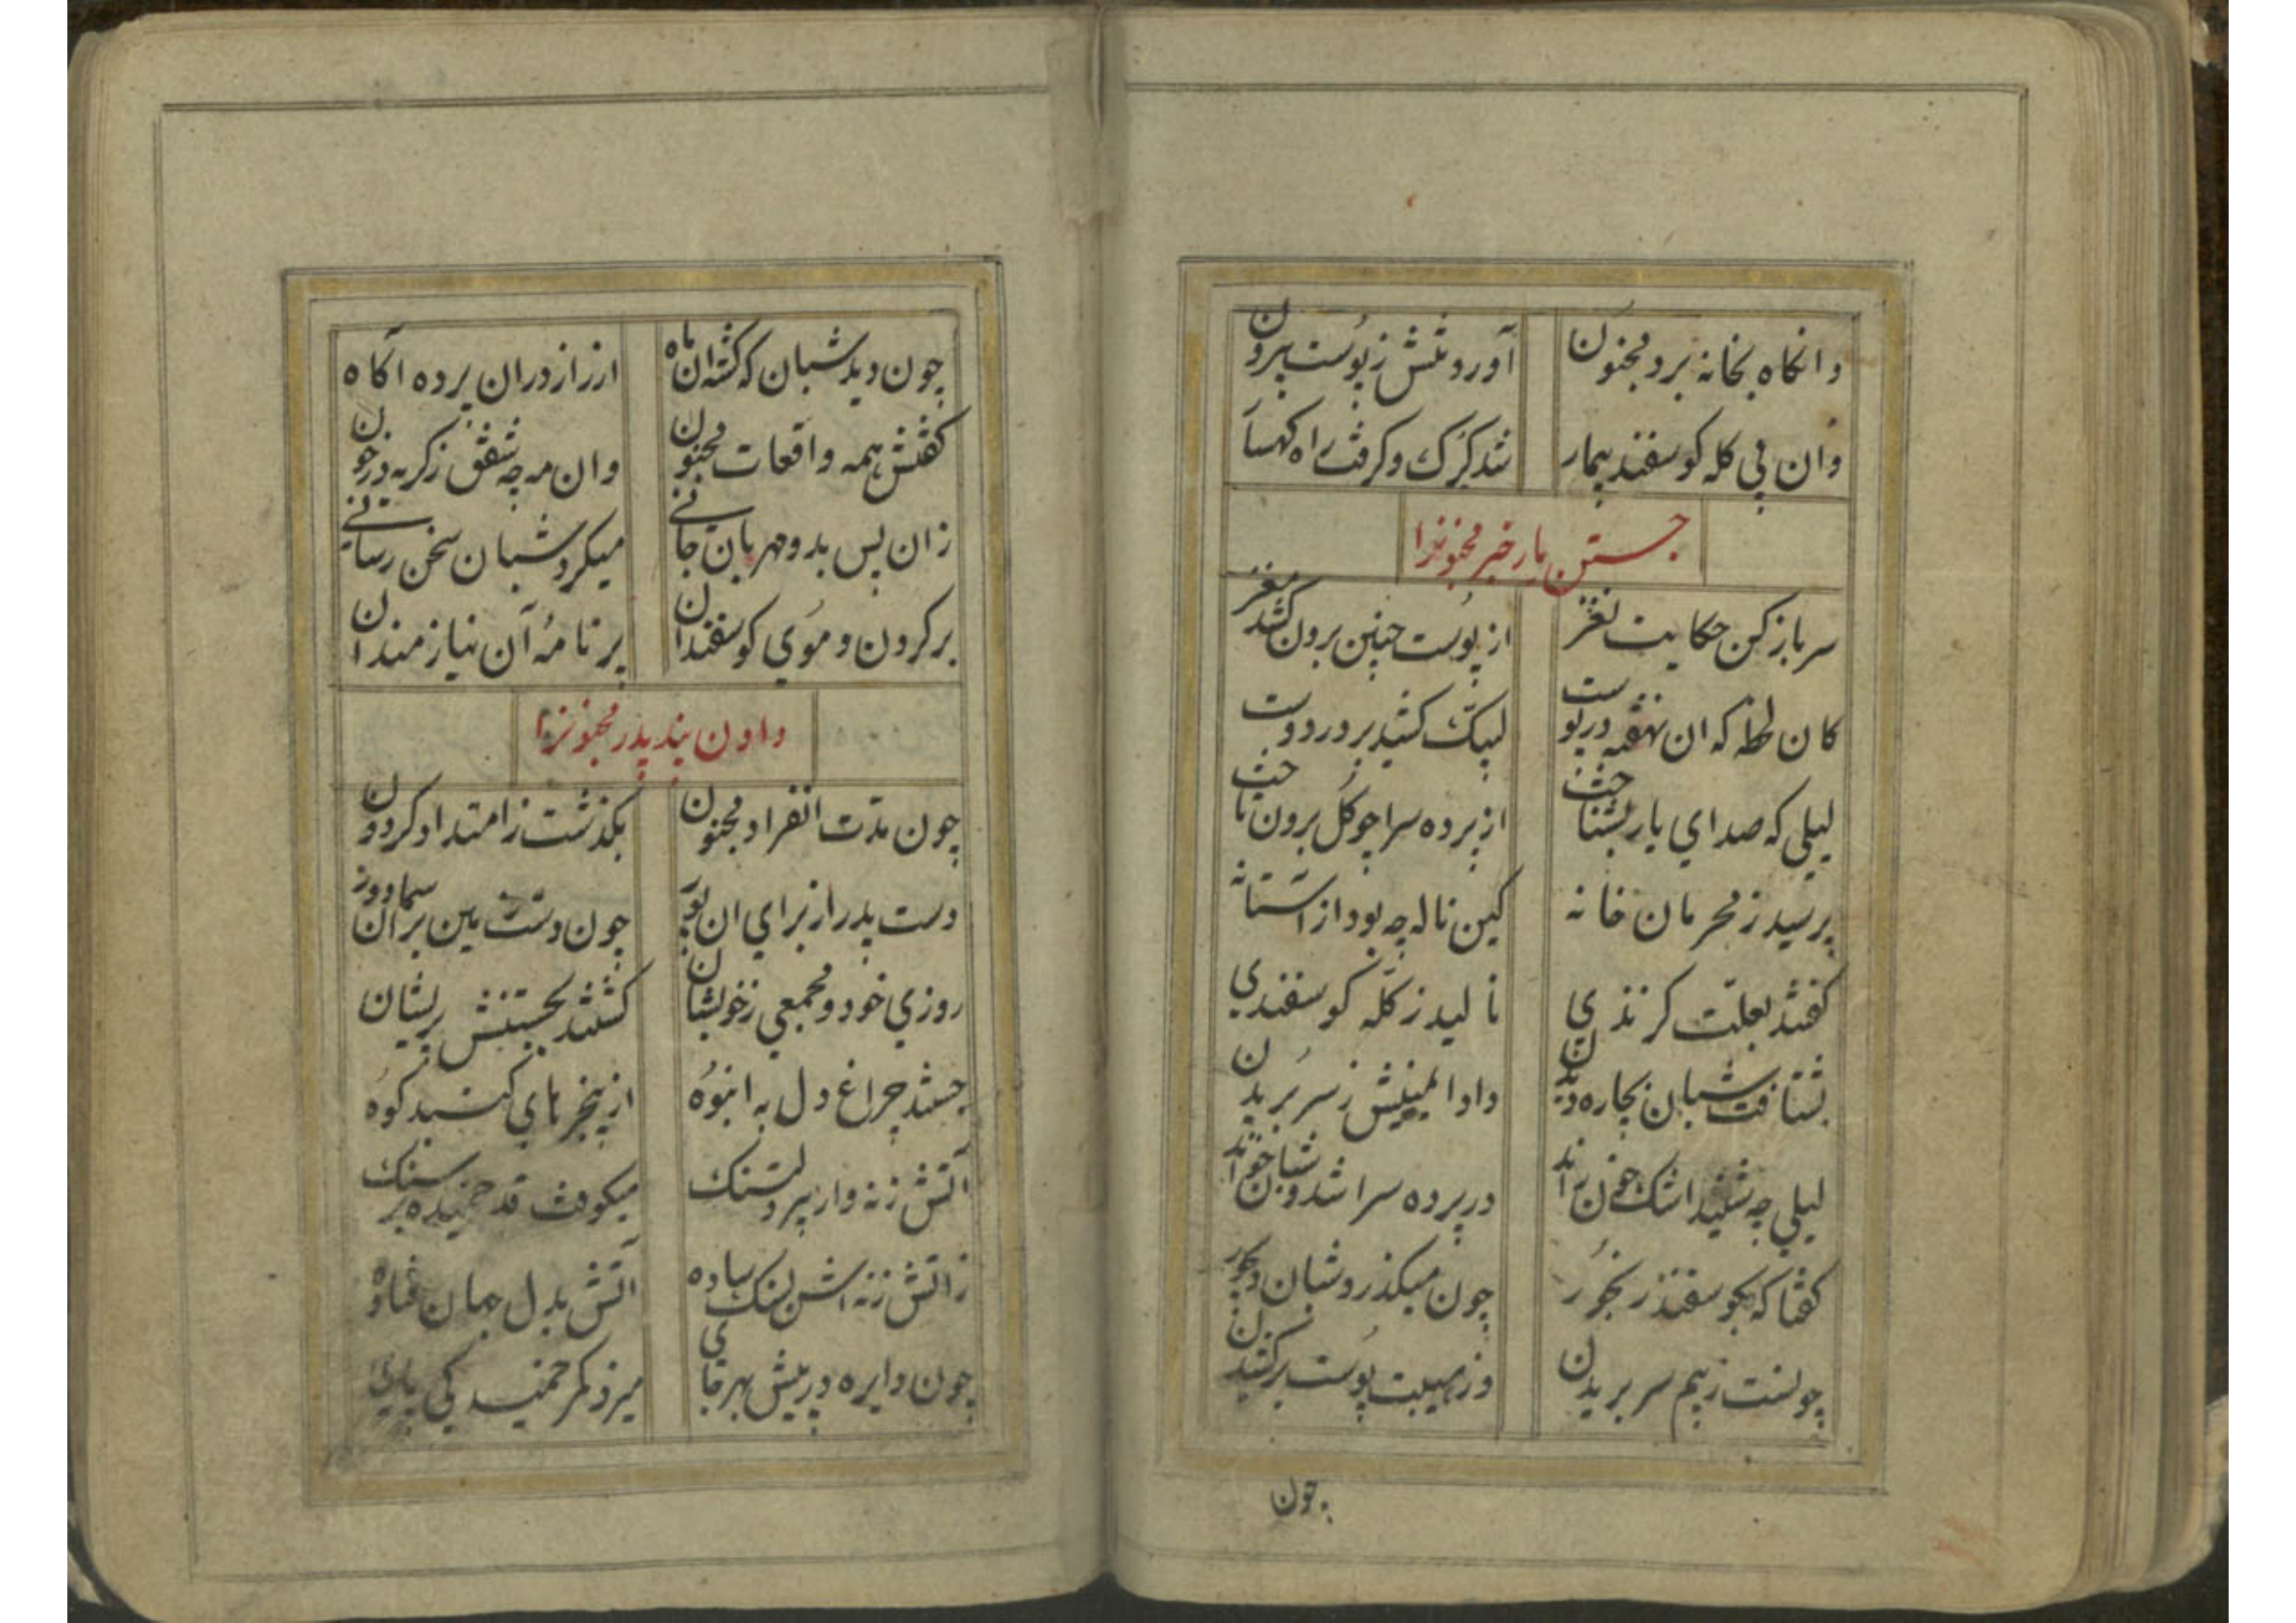 وانکاه بخانه برد مجنون آورد تنش ز پوست بیرون
وان پی کله کوسفند بیمار شد کرک و کرفت راه کهسا
جستن یار خبر مجنونرا
سر باز کن حکایت نغز از پوست چنین برون کشد مغز
کان لحظه که ان نهفته در پوست لبیک کشید بر در دوست
لیلی که صدای یار بشناخت از پرده سرا چو کل برون تاخت
پرسید ز محرمان خانه کین ناله چه بود از استانه
کفتند بعلت کزندی نالید ز کله کوسفندی
بشتافت شبان بچاره دیدن داد المیش ز سر بریدن
لیلی چه شنید اشک خون راند در پرده سرا شد و شبان خواند
کفتا که بکو سفند رنجور چون میکذرد شبان دیجور
چونست ز بیم سر بریدن وز هیبت پوست برکشیدن
چون
چون دید شبان که کشت ان ماه از راز دران پرده آکاه
کفتش همه واقعات مجنون وان مه چه شفق ز کریه در خون
زان پس بدو مهربان جانی میکرد شبان سخن رسانی
بر کردن و موی کوسفندان بر نامه آن نیازمندان
دادن پند پدر مجنونرا
چون مدت انفراد مجنون بکذشت ز امتداد کردون
دست پدر از برای ان پور چون دست یمین بر ان
روزی خود و مجمعی ز خویشان کشتند بجستنش پریشان
جستند چراغ دل به انبوه از پنجر های کنبد کوه
آتش زنه وار پیر دلتنک میکوفت قد خمیده بر سنک
ز اتش زنه اش سنک ساده اتش بدل جهان فتاده
چون دایره در پیش بهر جای میزد کمر خمیدکی پای